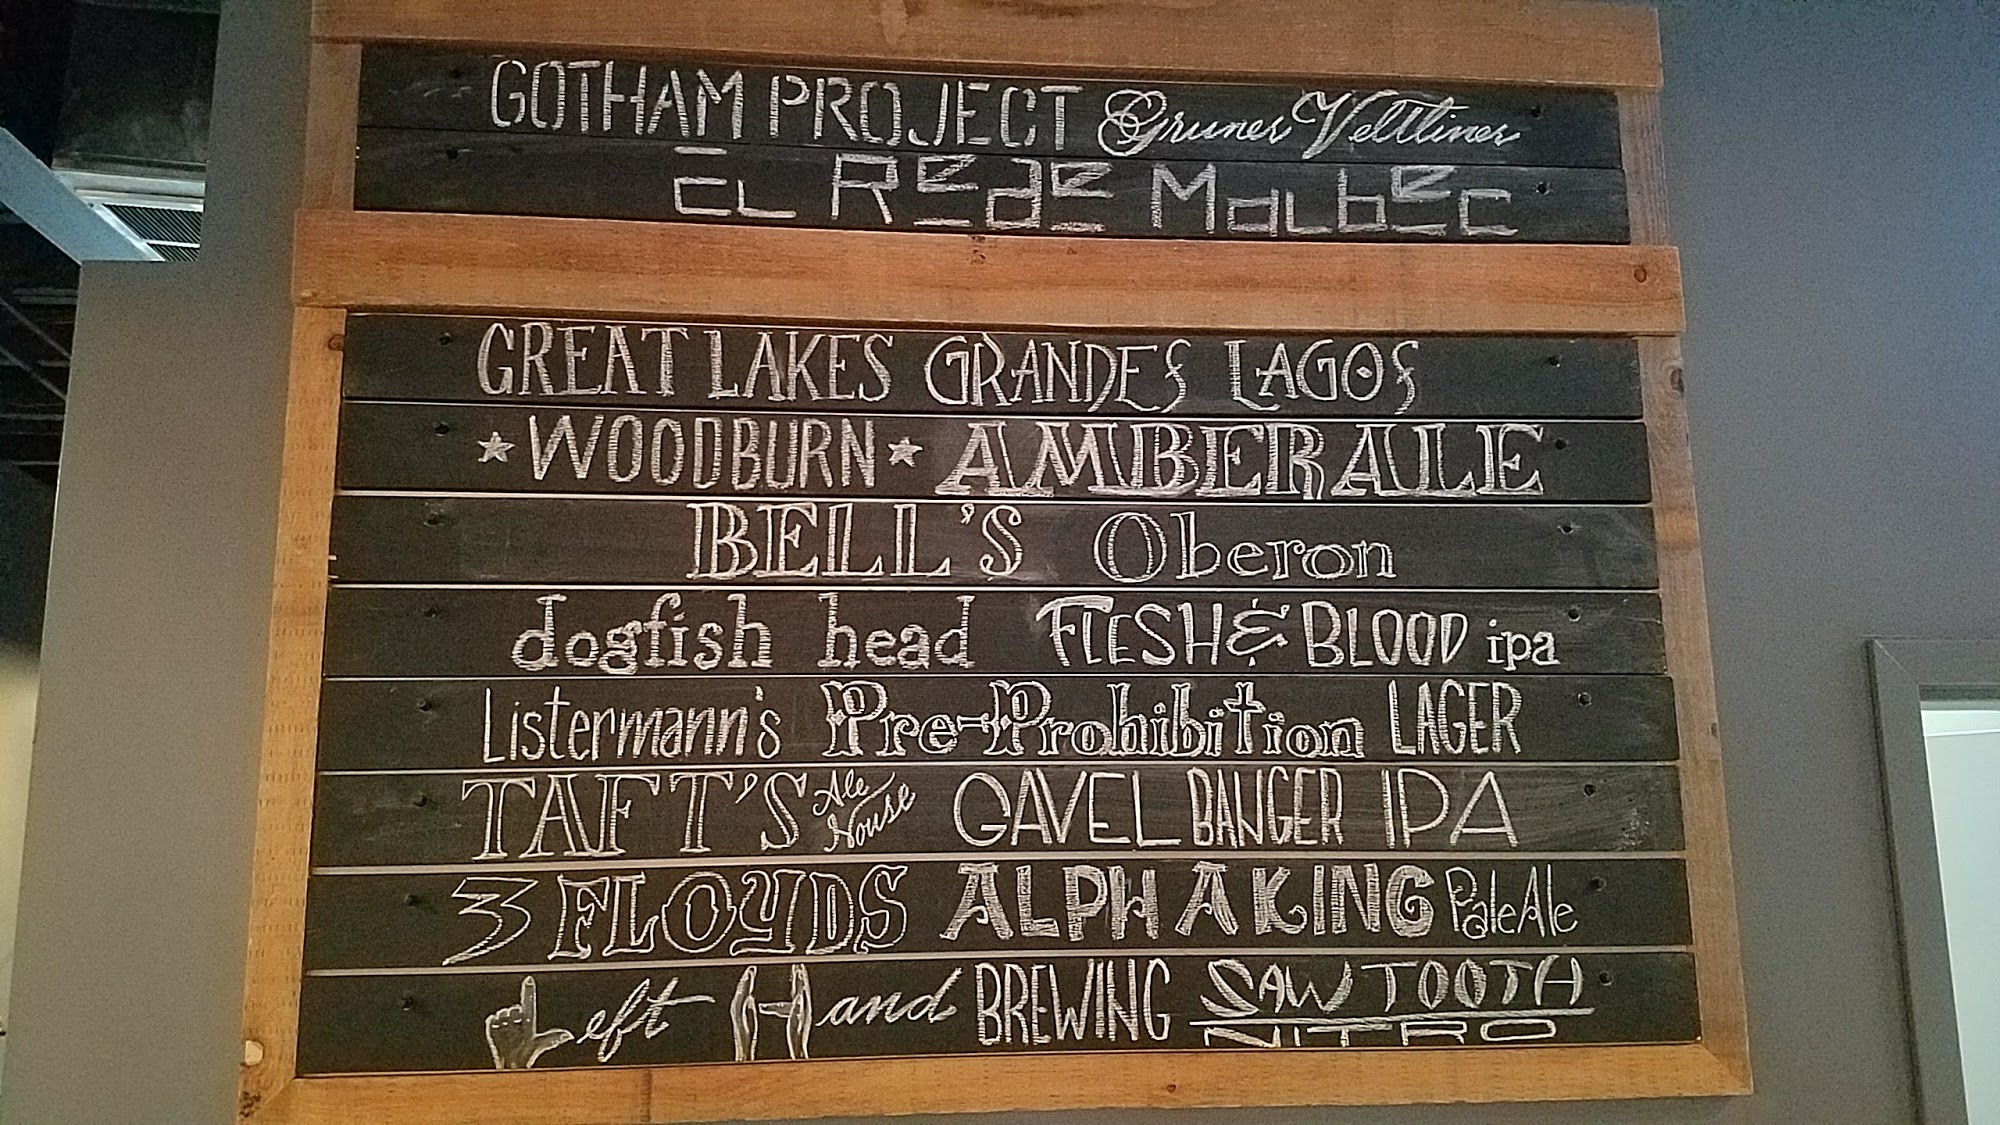 GOTHAM PROJECT Gruner Veltliner
EL Rede Malbec
GREAT LAKES GRANDES LAGOS
WOODBURN AMBER ALE
BELL'S Oberon
dogfish head FLESH & BLOOD ipa
Listermann's Pre-Prohibition LAGER
TAFT'S Ale House GAVEL BANGER IPA
3 FLOYDS ALPHA KING Pale Ale
Left Hand BREWING SAWTOOTH NITRO